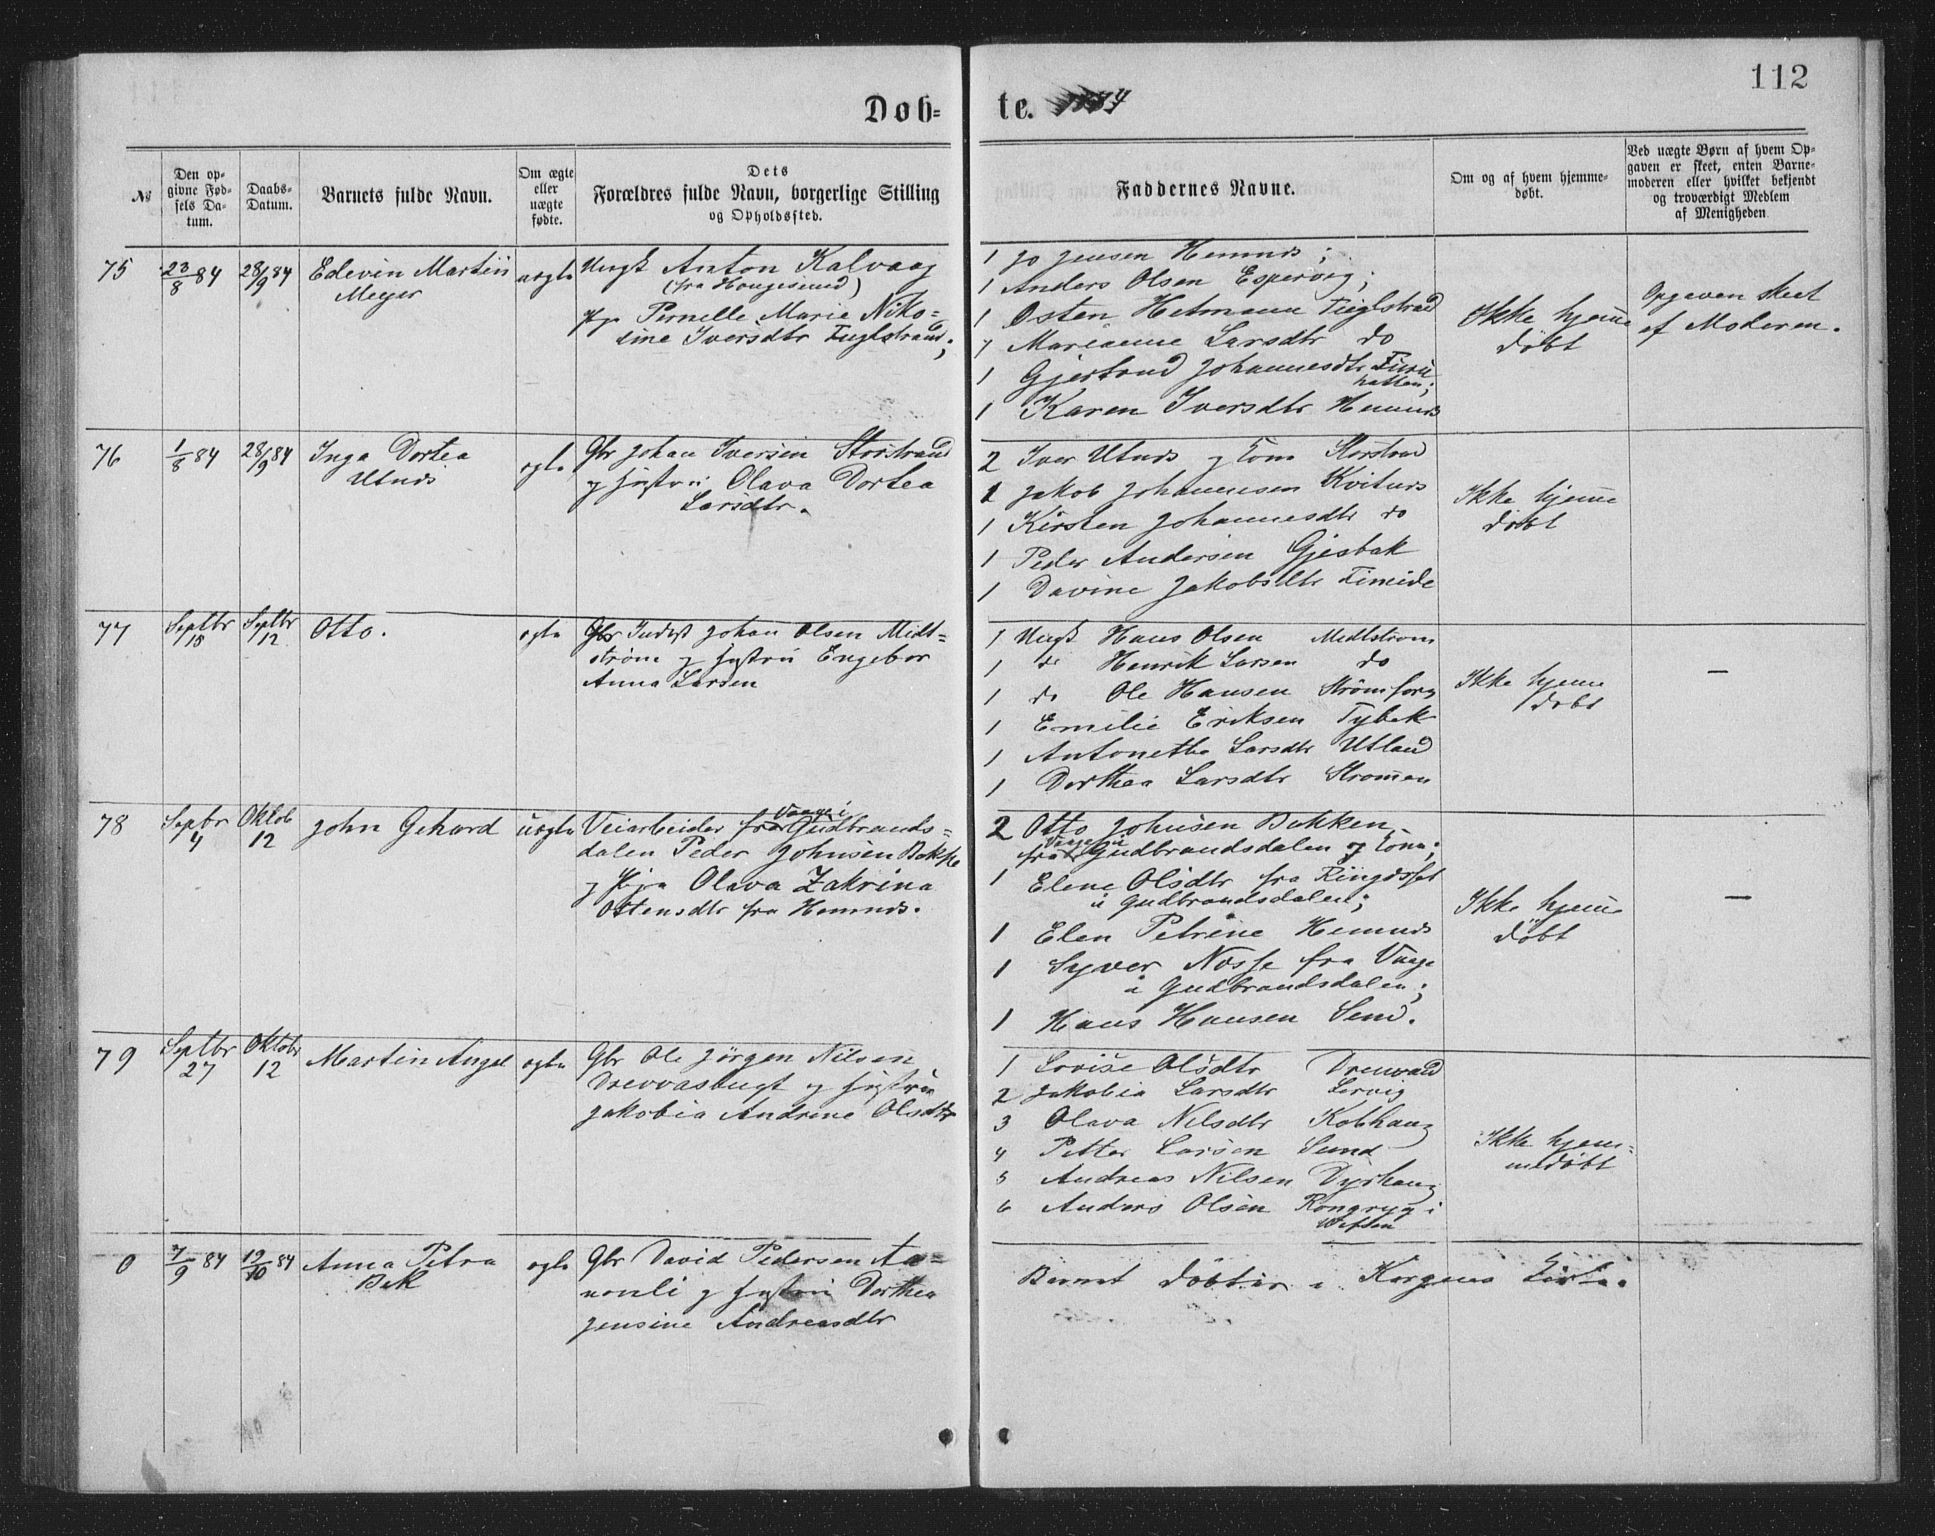 112
Døb-
te. 1884
№
Den op-
givne Fød-
sels Da-
tum.
Daabs-
Datum.
Barnets fulde Navn.
Om ægte
eller
uægte
fødte.
Dets
Forældres fulde Navn, borgerlige Stilling
og Opholdssted.
Faddernes Navne.
Om og af hvem hjemme-
døbt.
Ved uægte Børn af hvem Op-
gaven er skeet, enten Barne-
moderen eller hvilket bekjendt
og troværdigt Medlem
af Menigheden
75
23/8 84
28/9 84
Edevin Martin
Meyer
uægte
Ungk Anton Kalvaag
(fra Haugesund)
Pige Pernelle Marie Niko=
line Iversdtr Fuglstrand;
1 Jo Jensen Hemnes;
1 Anders OlsenEspervig;
1 Osten Hetmann Fuglstrand
1 Marianne Larsdtr do
1 Gjertrud Johannesdtr Furu
hatten;
1 Karen Iversdtr Hemnes
Ikke hjemme
døbt
Opgaven skeet
af Moderen.
76
1/8 84
28/9 84
Inga Dortea
Utnes
ægte
Gbr Johan Iversen Storstrand
og Hustru Olava Dortea
Larsdtr.
2 Iver Utnes og Kone Storstrand
1 Jakob Johannesen Kvitnes
1 Kirsten Johannesdtr do
1 Peder Andersen Gjesbak
1 Davine Jakobsdtr
Ikke hjemme
døbt
77
Septbr
18
Septbr
12
Otto.
ægte
Gbr Inderst Johan Olsen Midt=
strøm og Hustru Engebor
Anna Larsen
1 Ungk Hans Olsen Midtstrøm
1 do Henrik Larsen do
1 do Ole Hansen Strømfors
1 Emilie Eriksen Tybek
1 Antonetha Larsdtr Utland
1 Dorthea Larsdtr Strømmen
Ikke hjemme
døbt
—
78
Sepbr
4
Oktob
12
John Gehard
uægte
Vaage i
Veiarbeider fra Gudbrands=
dalen Peder Johnsen Bakke
og Pige Olava Zakrina
Ottensdtr fra Hemnes.
2 Otto Johnsen Bakken,
Vaage i
fra Gudbrandsdalen og Kone;
1 Elene Olsdtr fra Ringdsset
i Gudbrandsdalen;
1 Elen Petrine Hemnes
1 Syver fra Vaage
i Gudbrandsdalen;
1 Hans Hansen Sund.
Ikke hjemme
døbt
—
79
Septbr
27
Oktobr
12
Martin Angel
ægte
Gbr Ole Jørgen Nilsen
Drevvasbugt og Hustru
Jakobia Andrine Olsdtr
1 Lovise Olsdtr Drevvand
2 Jakobia Larsdtr Lervig
3 Olava Nilsdtr Kobhaug
4 Petter Larsen Sund
5 Andreas Nilsen Dyrhaug
6 Anders Olsen i
Vefsen
Ikke hjem=
medøbt
0
7/9 84
12/10 84
Anna Petra
Bek
ægte
Gbr David Pedersen Aa=
nonli og Hustru Dorthea
Jensine Andreasdtr
Barnet døbt i Korgens Kirke.